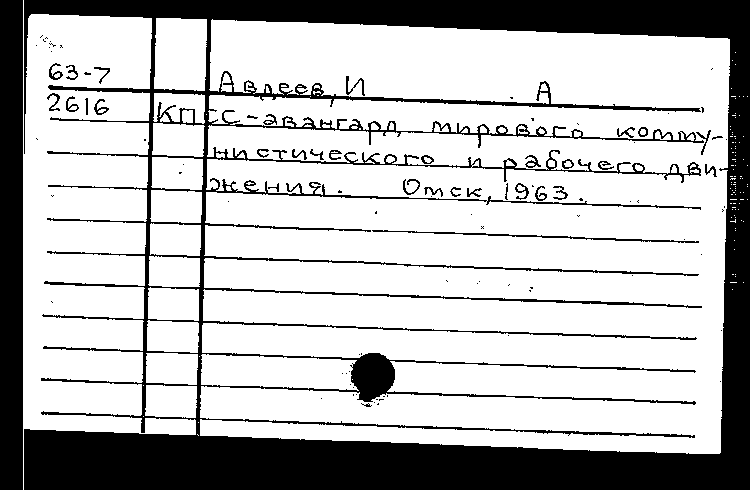 63-7 Авдеев, И А
2616 КПСС-авангард мирового комму-
нистического и рабочего дви-
жения. Омск, 1963.